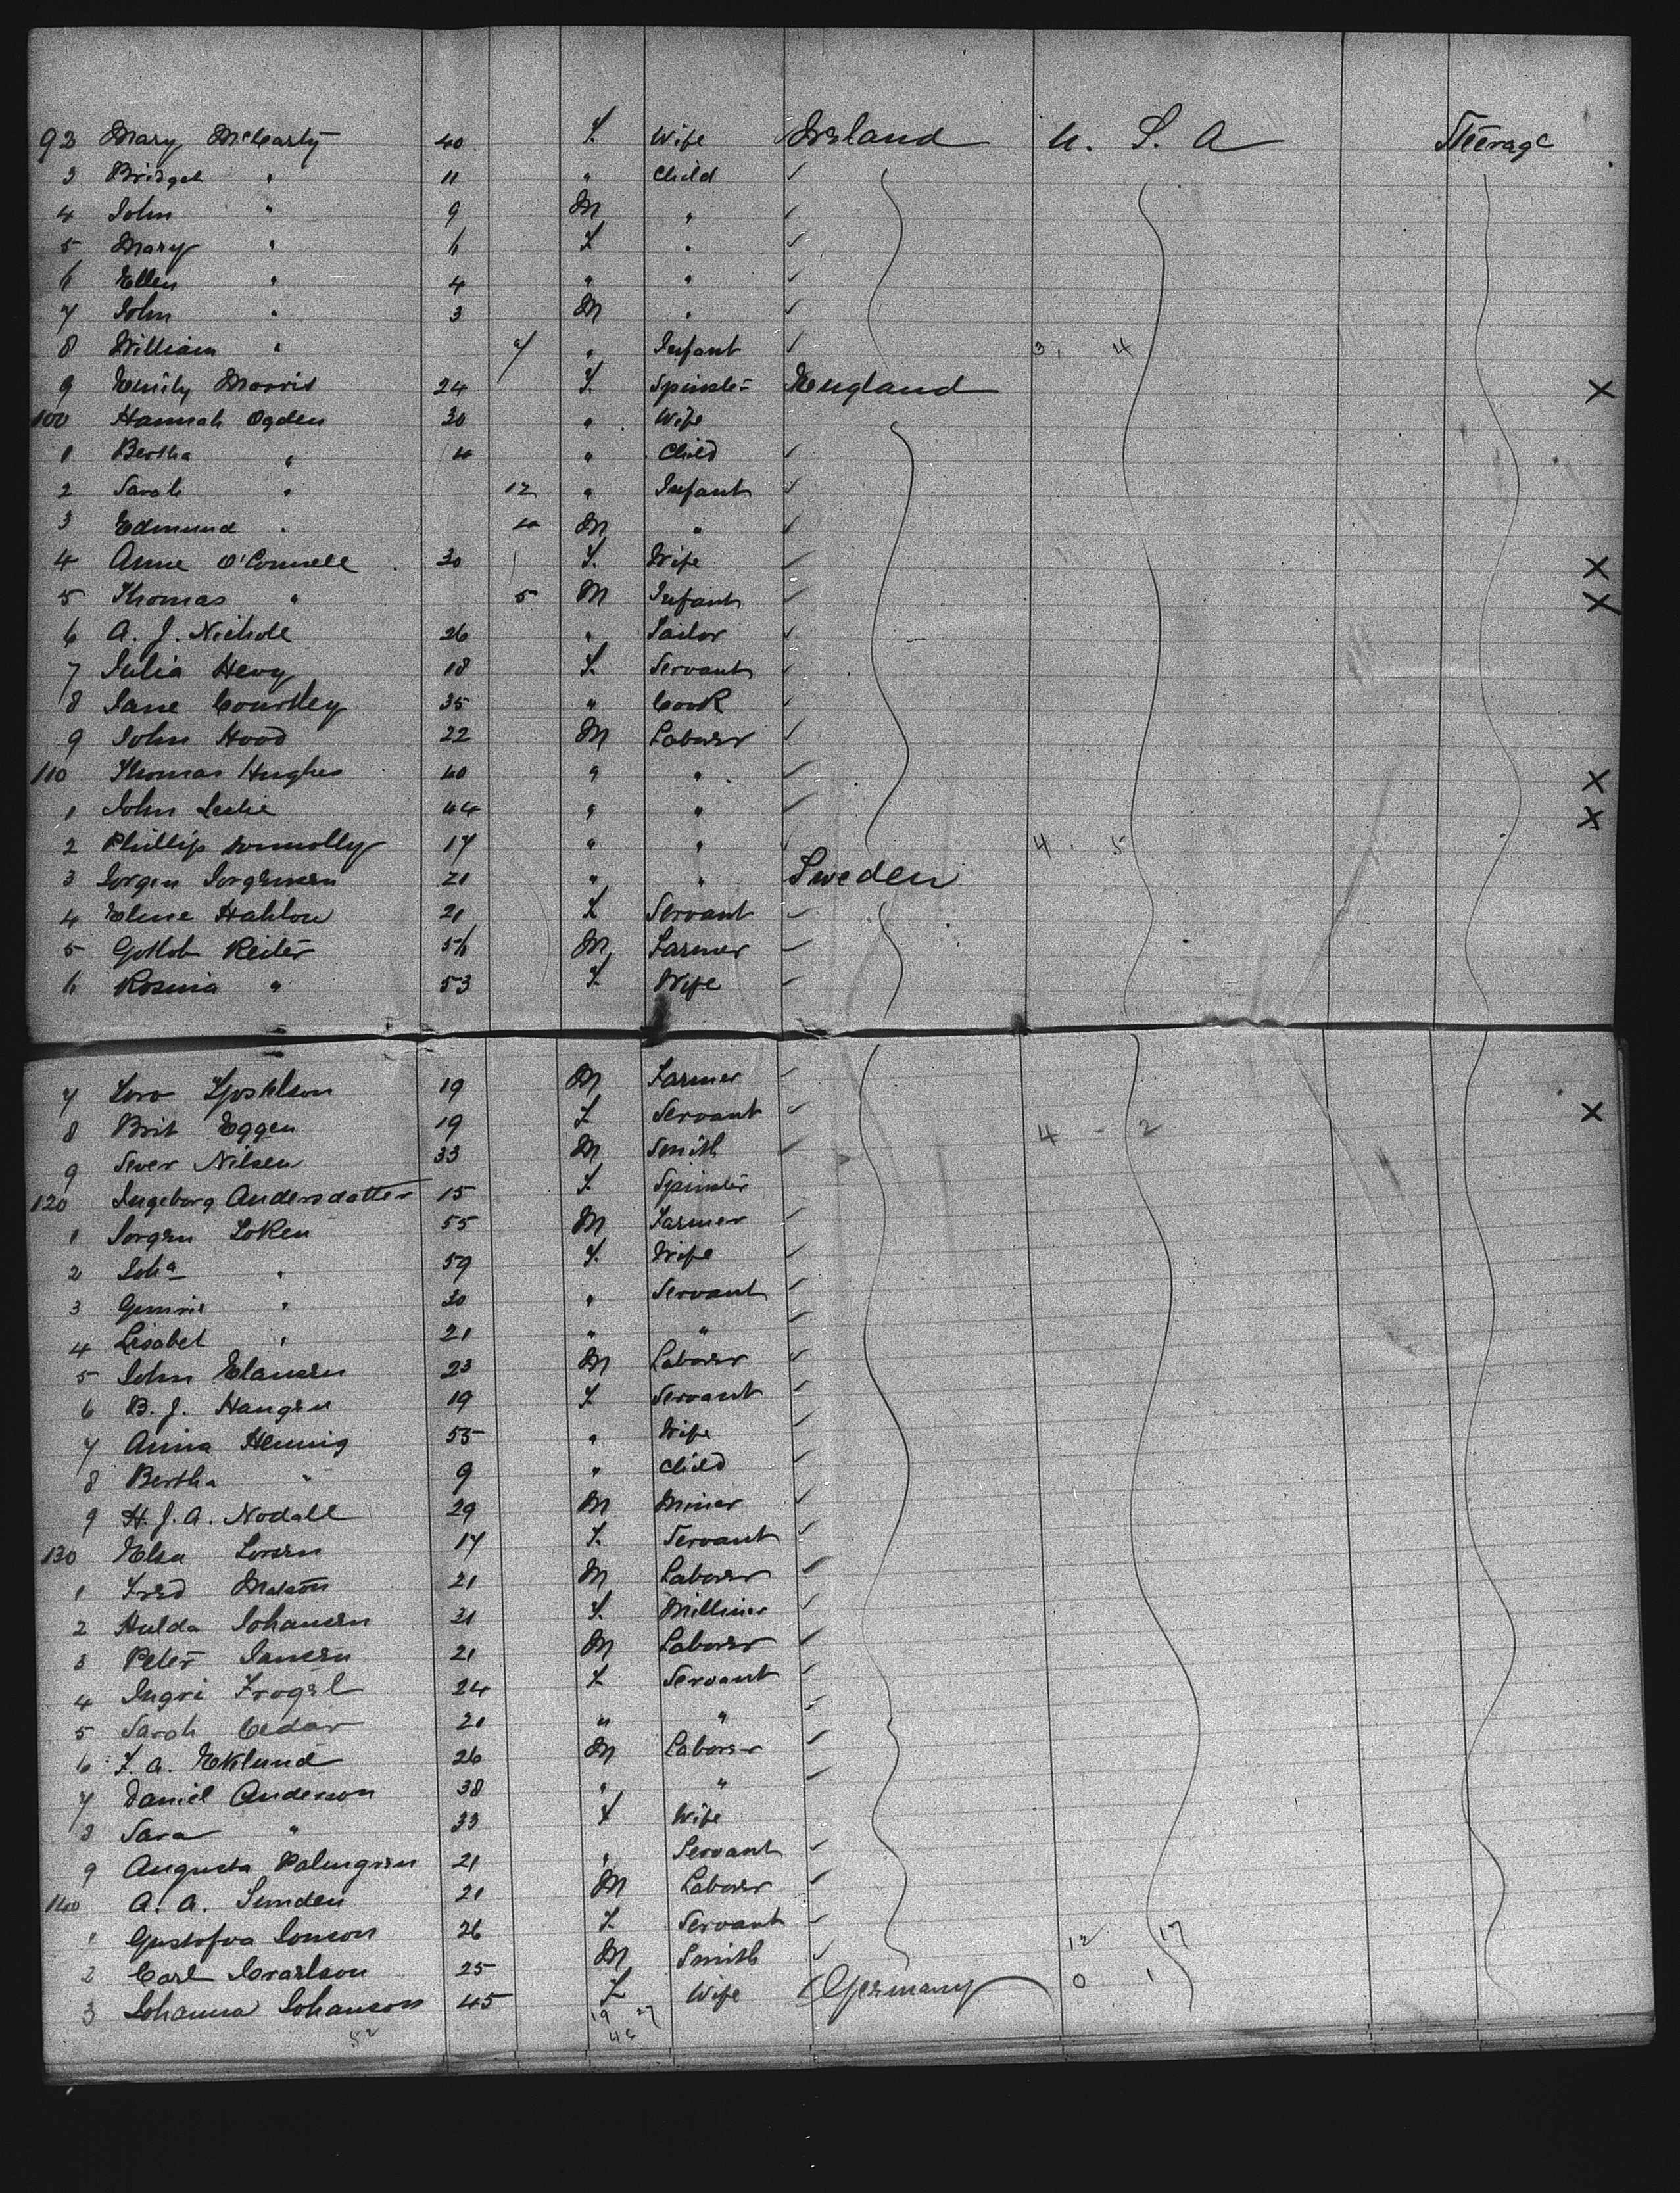 92 Mary McCarty 40 F. Wife Ireland U. S. A Steerage
3 Bridget " 11 " Child ✓
4 John " 9 M " ✓
5 Mary " 6 F " ✓
6 Ellen " 4 " " ✓
7 John " 3 M " ✓
8 William " 7 " Infant ✓ 3, 4
9 Emily Morris 24 F. Spinster England X
100 Hannah Ogden 30 " Wife
1 Bertha " 4 " Child ✓
2 Sarah " 12 " Infant ✓
3 Edmund " M " ✓
4 Anne O'Connell 30 F. Wife ✓ X
5 Thomas " 5 M Infant ✓ X
6 A. J. Nicholl 26 " Sailor ✓
7 Julia Hevy 18 F. Servant ✓
8 Jane Courtley 35 " Cook ✓
9 John Hood 22 M Laborer ✓
110 Thomas Hughes 40 " " ✓ X
1 John Leslie 44 " " ✓ X
2 Phillip Connolly 17 " " ✓ 4 5
3 Jorgen Jorgensen 21 " " Sweden
4 Eline Hahlow 21 F Servant ✓
5 Gottlob Reiter 56 M Farmer ✓
6 Rosina " 53 F. Wife ✓
7 19 M Farmer ✓
8 Brit Eggen 19 F Servant ✓ 4 - 2 X
9 Sever Nilsen 33 M Smith ✓
120 Ingeborg Andersdatter 15 F. Spinster
1 Jorgen Loken 55 M Farmer ✓
2 " 59 F. Wife ✓
3 " 30 " Servant ✓
4 Lisabet " 21 " " ✓
5 John Clausen 23 M Laborer ✓
6 B. J. Haugen 19 F Servant ✓
7 Anna Hennig 55 " Wife ✓
8 Bertha " 9 " Child ✓
9 H. J. A. Nodall 29 M Miner ✓
130 Elsa Lorsen 17 F. Servant ✓
1 Fred Matson 21 M Laborer ✓
2 Hulda Johansen 21 F. Milliner ✓
3 Peter Jansen 21 M Laborer ✓
4 Ingri Frogel 24 F Servant ✓
5 Sarah Cedar 20 " " ✓
6 F. A. Eklund 26 M Laborer ✓
7 Daniel Anderson 38 " " ✓
8 Sara " 33 F Wife
9 Augusta Palmgren 21 " Servant ✓
140 A. A. Sunden 21 M Laborer ✓
1 Gustofva Jonson 26 F. Servant ✓
2 Carl Ivarlson 25 M Smith ✓ 12 17
3 Johanna Johanson 45 F Wife Germany 0 1
52 19 27